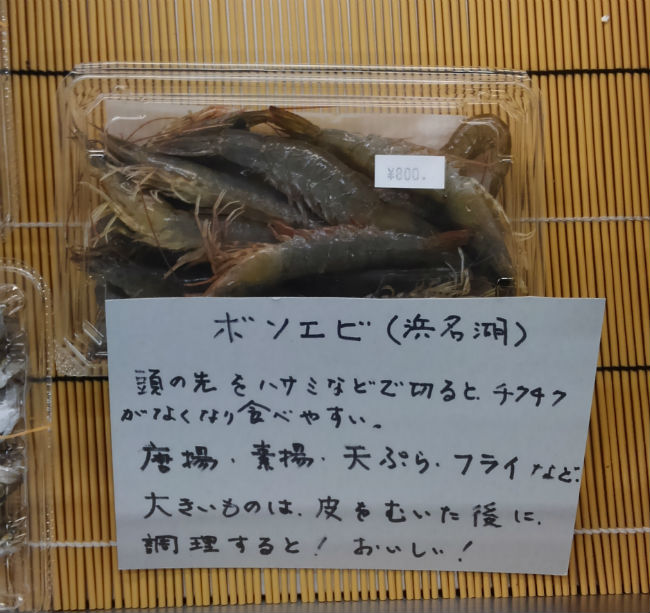 ¥800.
ボソエビ(浜名湖)
頭の先をハサミなどで切ると、チクチク
がなくなり食べやすい。
唐揚・素揚・天ぷら・フライなど.
大きいものは、皮をむいた後に、
調理すると!おいしい!